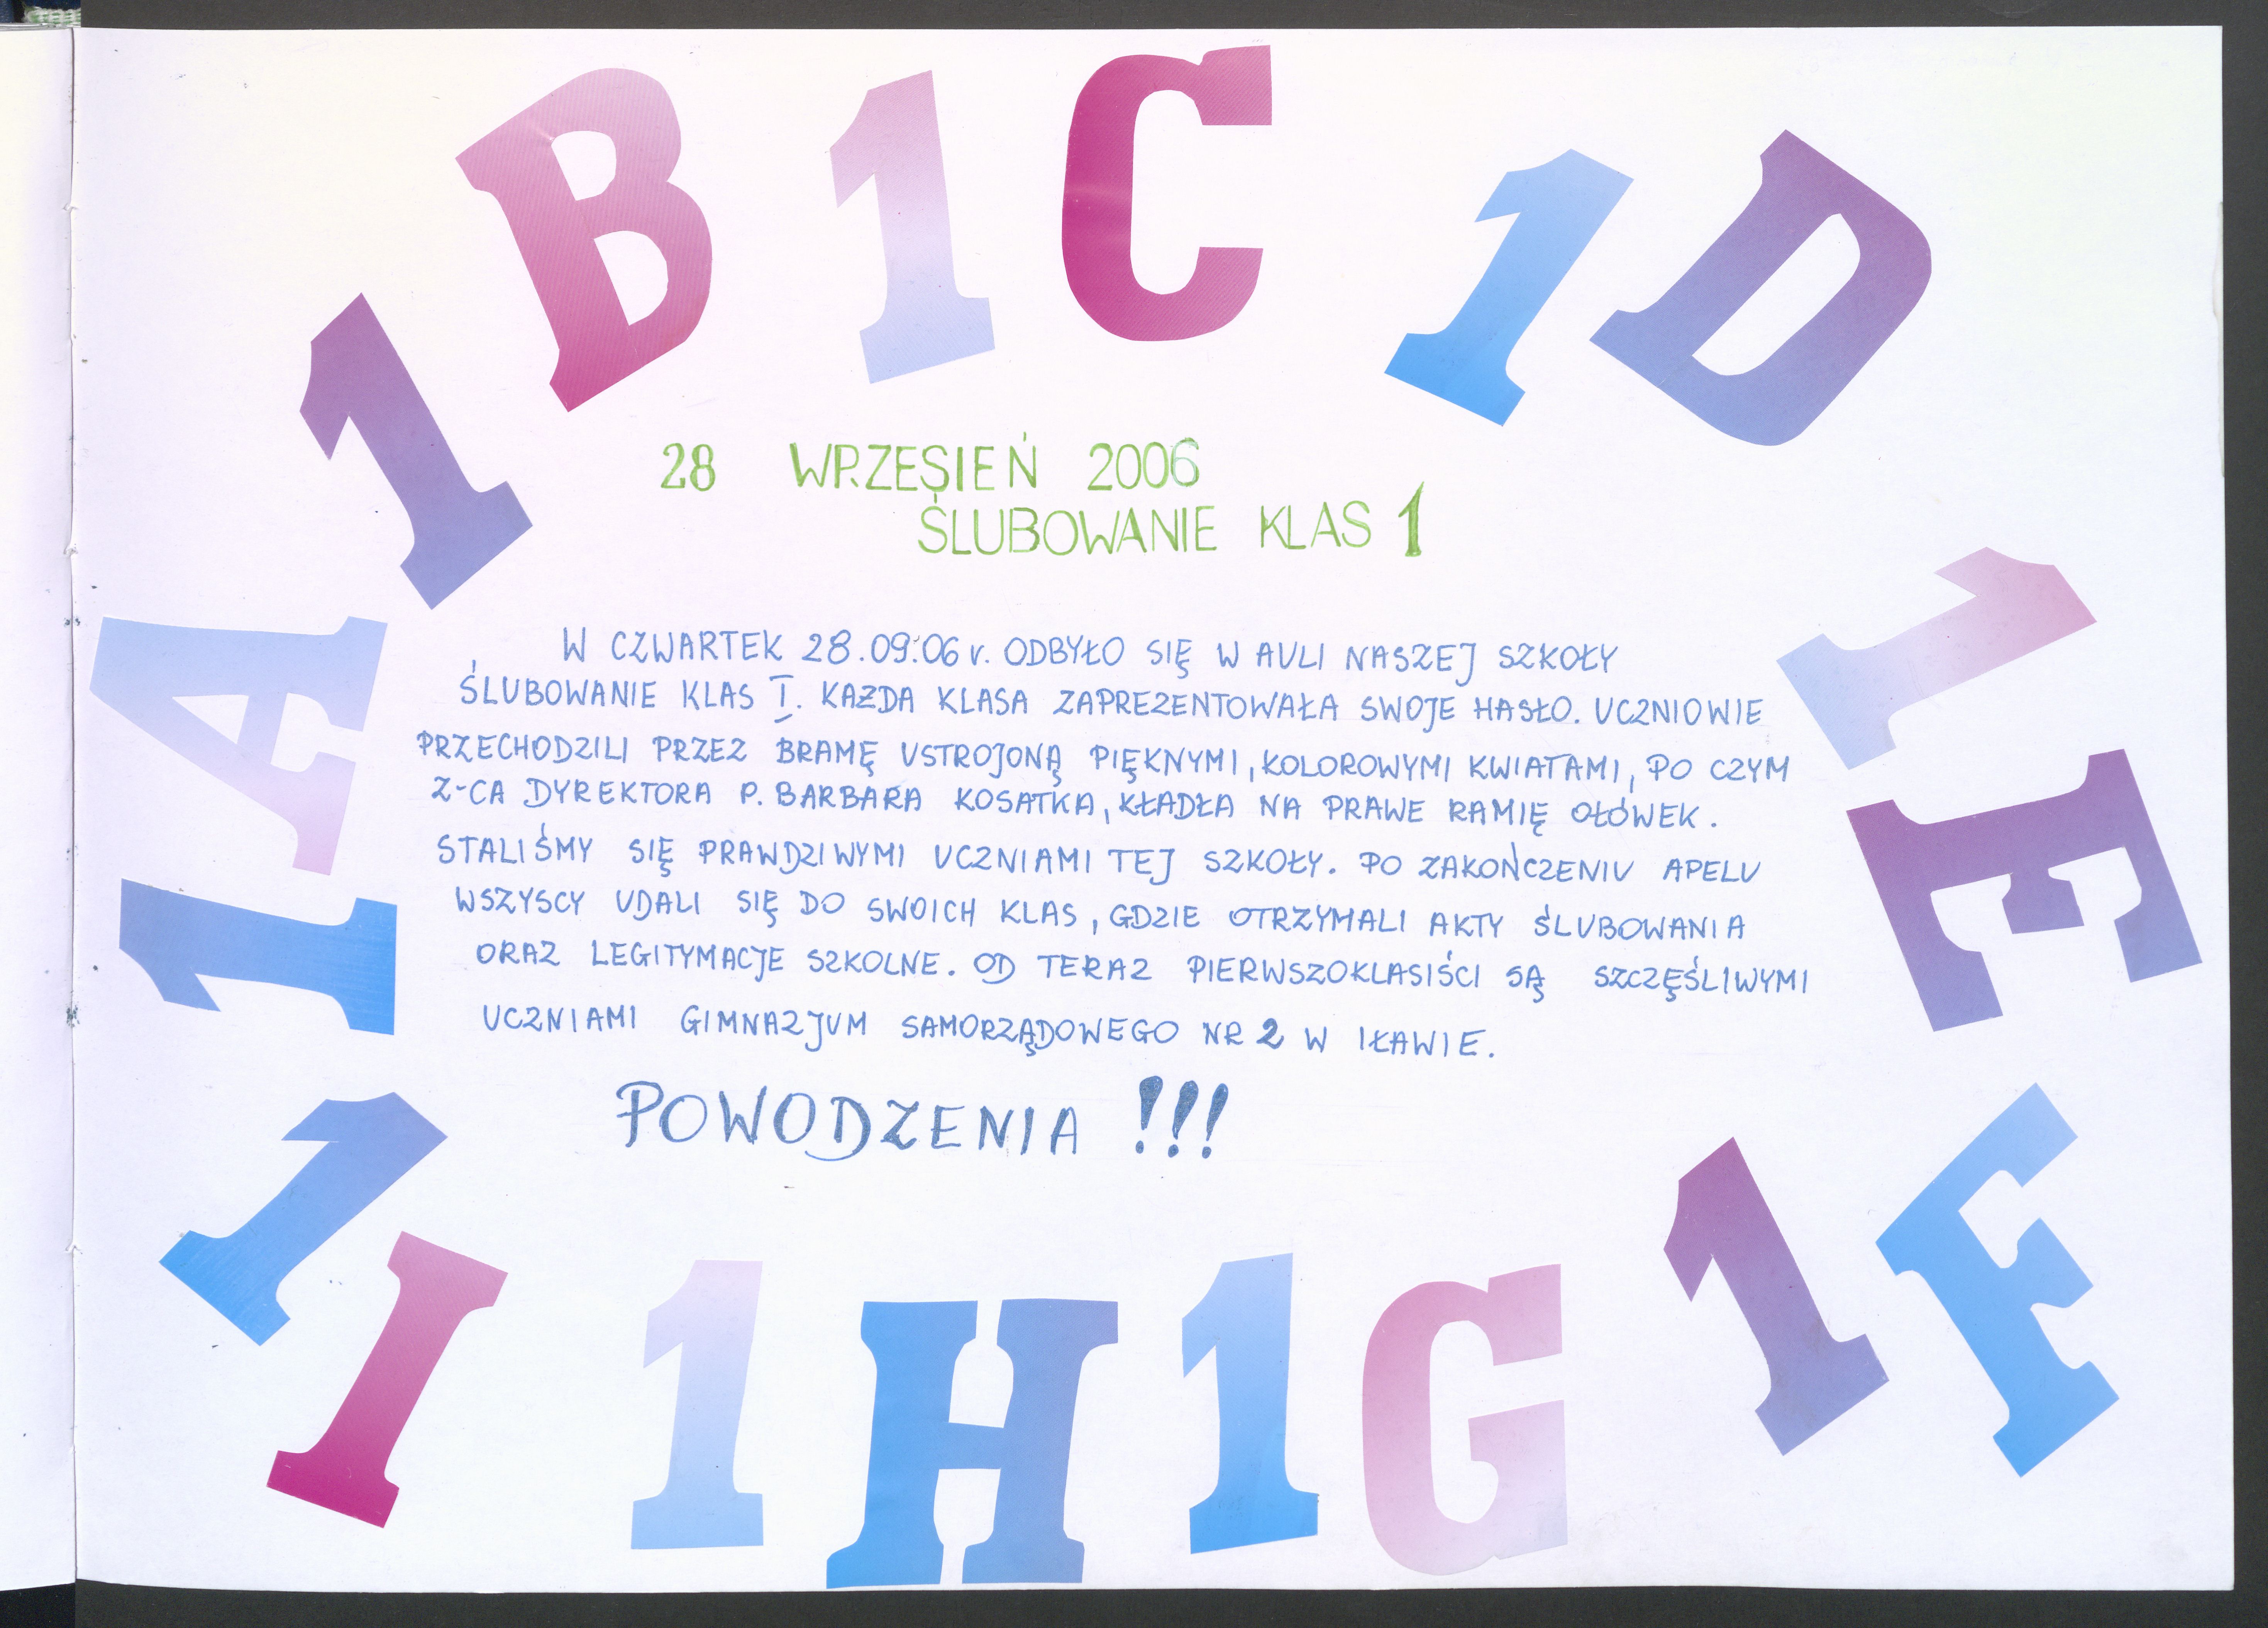 1A
1B
1C
1D
1E
1F
1G
1H
1I
28 WRZESIEŃ 2006
ŚLUBOWANIE KLAS 1
W CZWARTEK 28.09.06 r. ODBYŁO SIĘ W AULI NASZEJ SZKOŁY
ŚLUBOWANIE KLAS I. KAŻDA KLASA ZAPREZENTOWAŁA SWOJE HASŁO. UCZNIOWIE
PRZECHODZILI PRZEZ BRAMĘ USTROJONĄ PIĘKNYMI, KOLOROWYMI KWIATAMI, PO CZYM
Z-CA DYREKTORA P. BARBARA KOSATKA, KŁADŁA NA PRAWE RAMIĘ OŁÓWEK.
STALIŚMY SIĘ PRAWDZIWYMI UCZNIAMI TEJ SZKOŁY. PO ZAKOŃCZENIU APELU
WSZYSCY UDALI SIĘ DO SWOICH KLAS, GDZIE OTRZYMALI AKTY ŚLUBOWANIA
ORAZ LEGITYMACJE SZKOLNE. OD TERAZ PIERWSZOKLASIŚCI SĄ SZCZĘŚLIWYMI
UCZNIAMI GIMNAZJUM SAMORZĄDOWEGO NR 2 W IŁAWIE.
POWODZENIA !!!